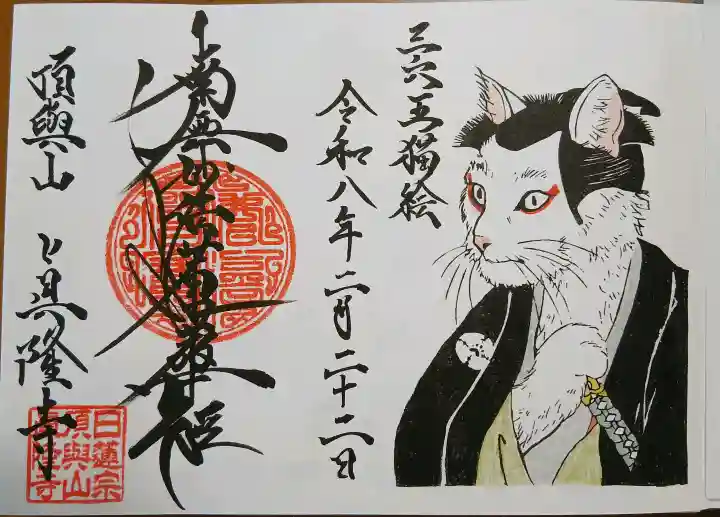 三六五猫絵
令和八年二月二十二日
南無妙法蓮華経
頂與山
隆寺
日蓮宗
頂與山